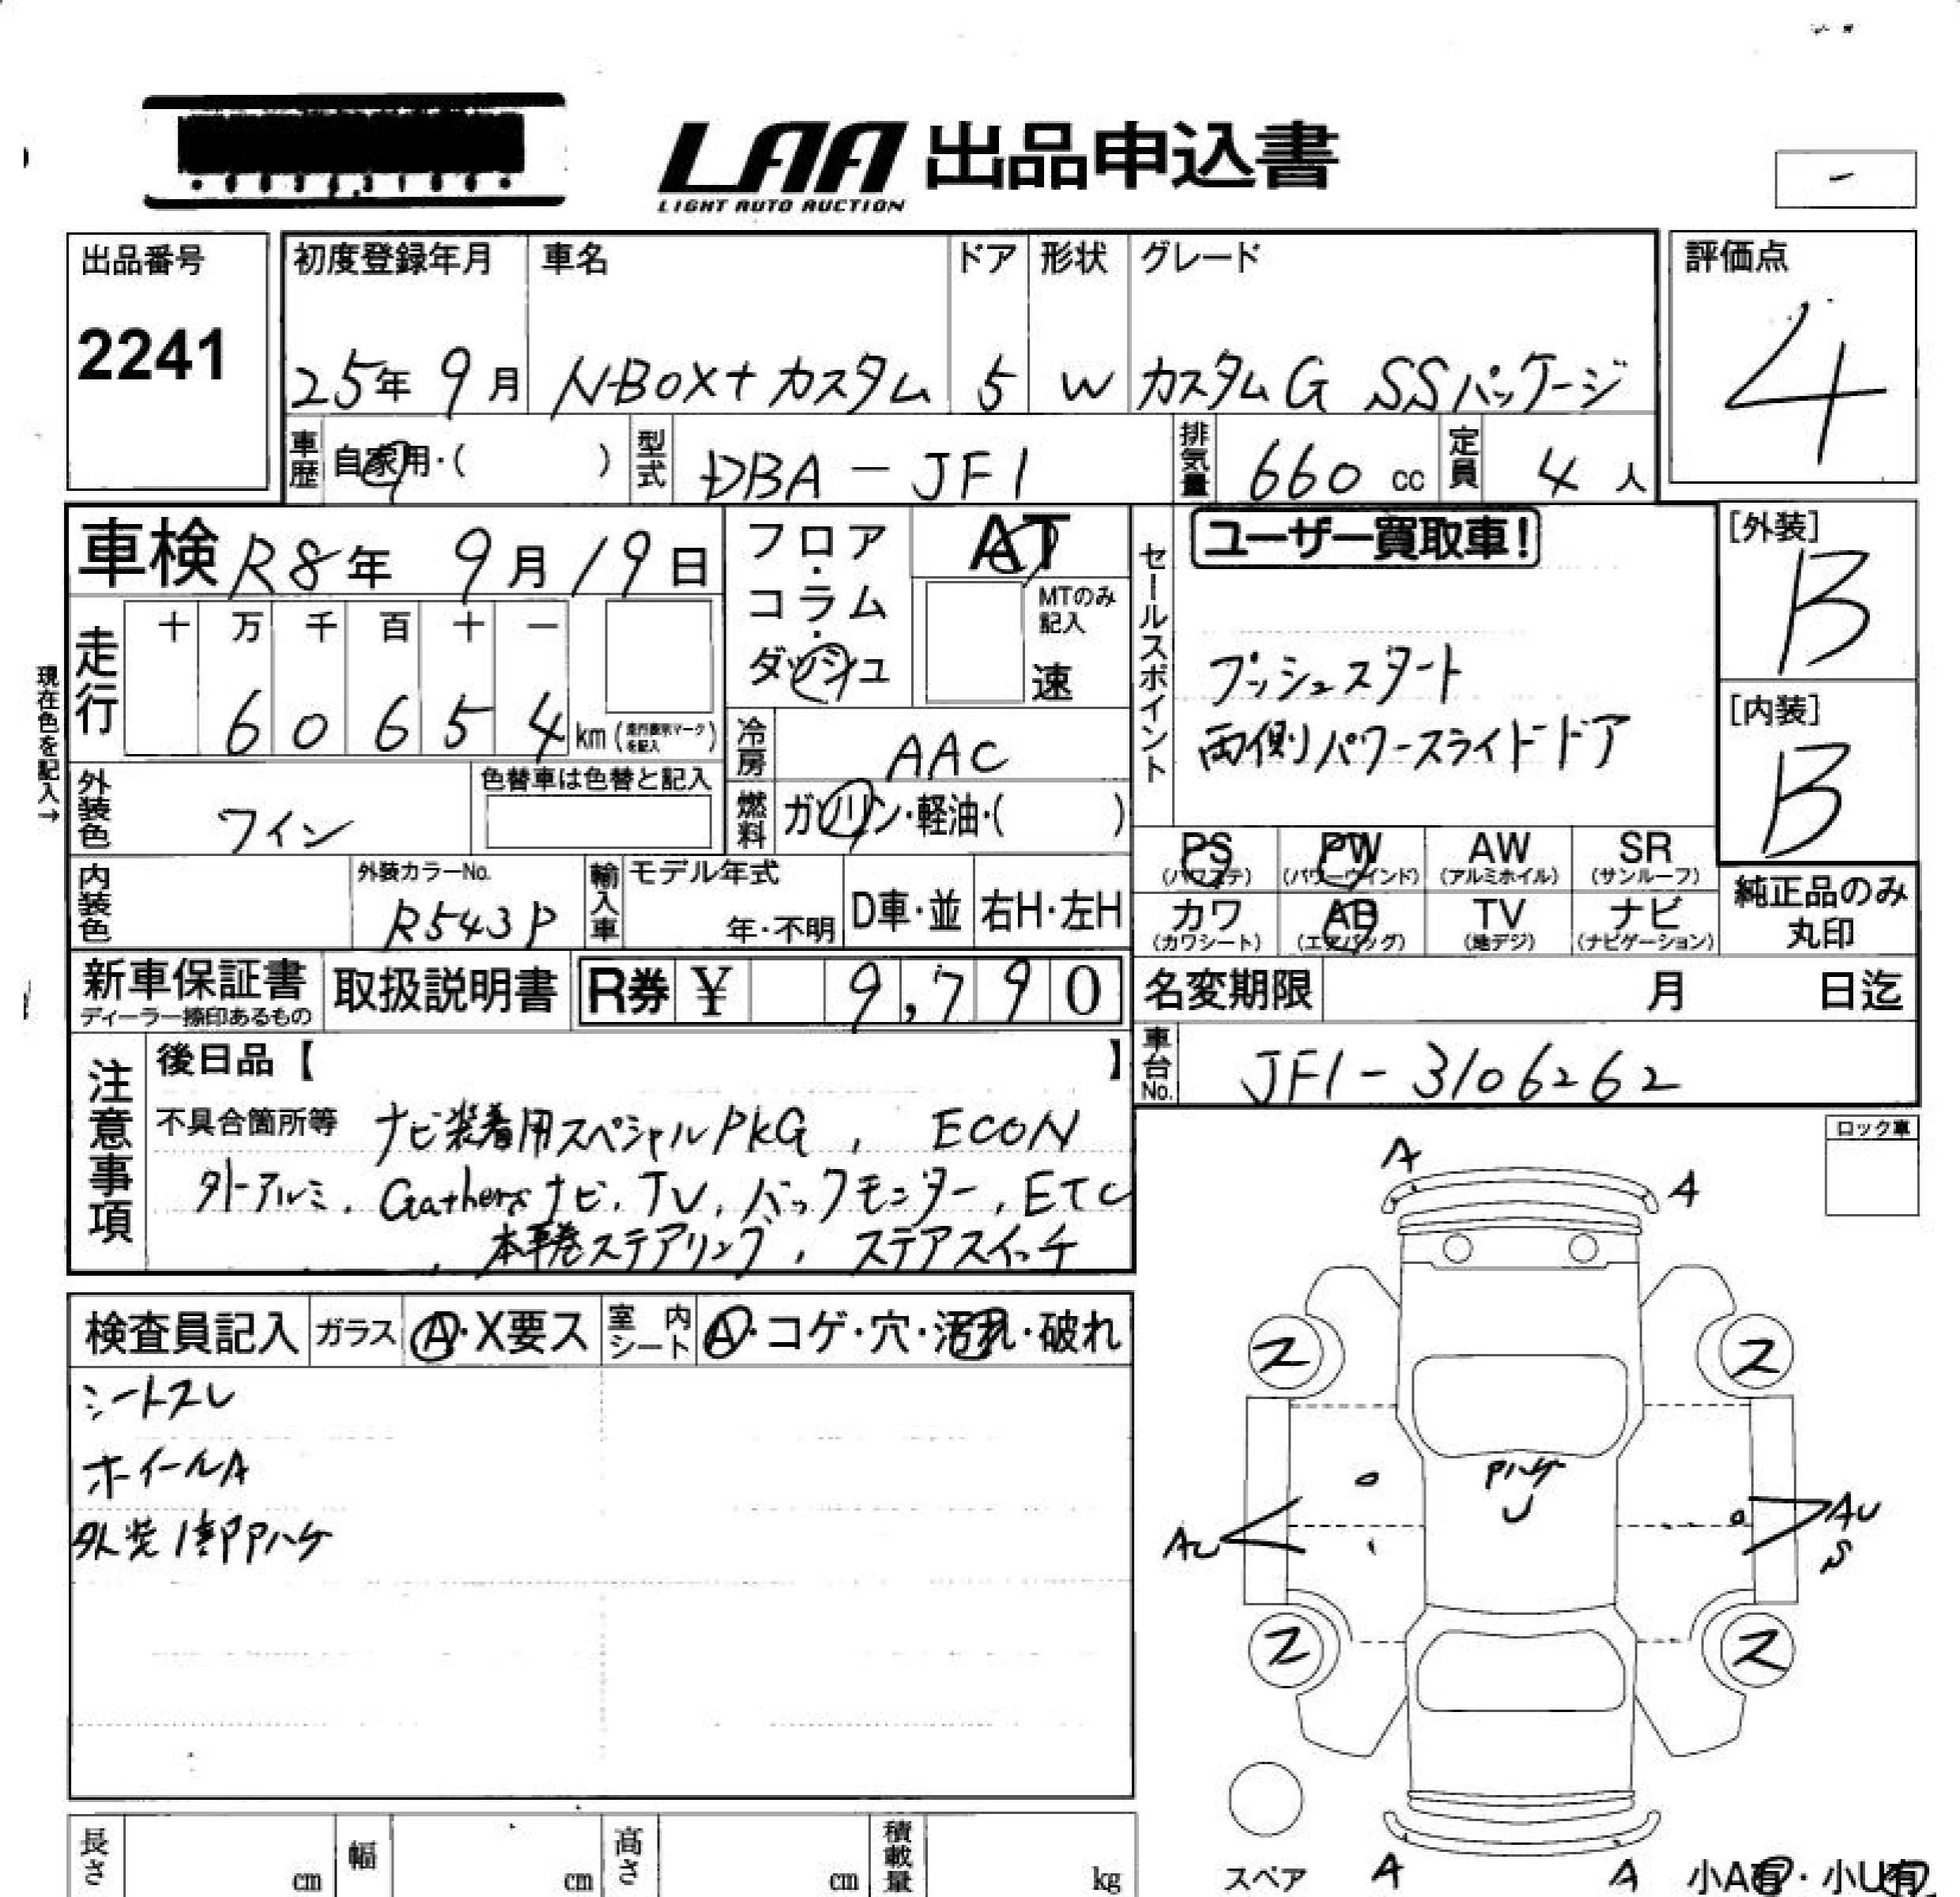 LAA 出品申込書
LIGHT AUTO AUCTION
-
出品番号
2241
初度登録年月
25年 9月
車名
N-BOX+ カスタム
ドア
5
形状
W
グレード
カスタムG SSパッケージ
評価点
4
車歴 自家用・( )
型式 DBA-JF1
排気量 660 cc
定員 4 人
車検 R8年 9月 19日
フロア・コラム・ダッシュ
AT
MTのみ記入
速
セールスポイント
ユーザー買取車!
プッシュスタート
両側パワースライドドア
[外装]
B
[内装]
B
現在色を記入→
走行
十 万 千 百 十 一
6 0 6 5 4 km (走行表示マークを記入)
冷房 AAC
燃料 ガソリン・軽油・( )
外装色 ワイン
色替車は色替と記入
内装色
外装カラーNo.
R543P
輸入車
モデル年式
年・不明
D車・並
右H・左H
PS (パワステ)
PW (パワーウインド)
AW (アルミホイル)
SR (サンルーフ)
カワ (カワシート)
AB (エアバッグ)
TV (地デジ)
ナビ (ナビゲーション)
純正品のみ丸印
新車保証書
ディーラー捺印あるもの
取扱説明書
R券 ¥ 9,790
名変期限 月 日迄
車台No. JF1-3106262
注意事項
後日品【 】
不具合箇所等 ナビ装着用スペシャルPKG , ECON
外アルミ, Gathersナビ, TV, バックモニター, ETC
, 本革巻ステアリング, ステアスイッチ
ロック車
検査員記入
ガラス A・X要ス
室内シート A・コゲ・穴・汚れ・破れ
シートスレ
ホイールA
外装1部Pハゲ
A
A
ス
ス
Pハゲ
U
AU
AU
S
ス
ス
スペア
A
A
小A有・小U有
長さ cm
幅 cm
高さ cm
積載量 kg